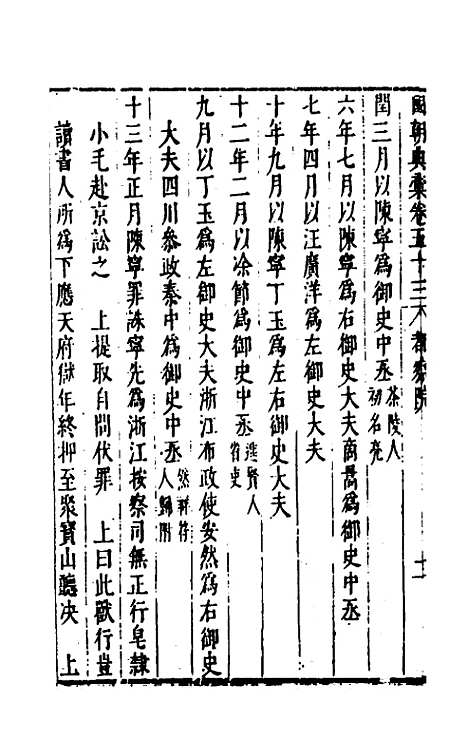 國朝典彙卷五十三 都察院 十一
閏三月以陳寧為御史中丞 茶陵人初名亮
六年七月以陳寧為右御史大夫商暠為御史中丞
七年四月以汪廣洋為左御史大夫
十年九月以陳寧丁玉為左右御史大夫
十二年二月以凃節為御史中丞 進賢人省吏
九月以丁玉為左御史大夫浙江布政使安然為右御史
大夫四川參政秦中為御史中丞 然祥符人歸附
十三年正月陳寧罪誅寧先為浙江按察司無正行皂隸
小毛赴京訟之 上提取自問伏罪 上曰此獸行豈
讀書人所為下應天府獄年終押至聚寶山聽决 上